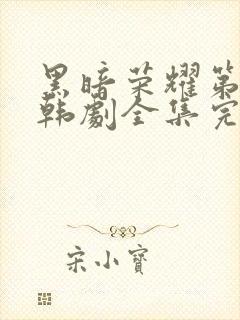 黑暗荣耀第
韩劇全集完
宋小寶